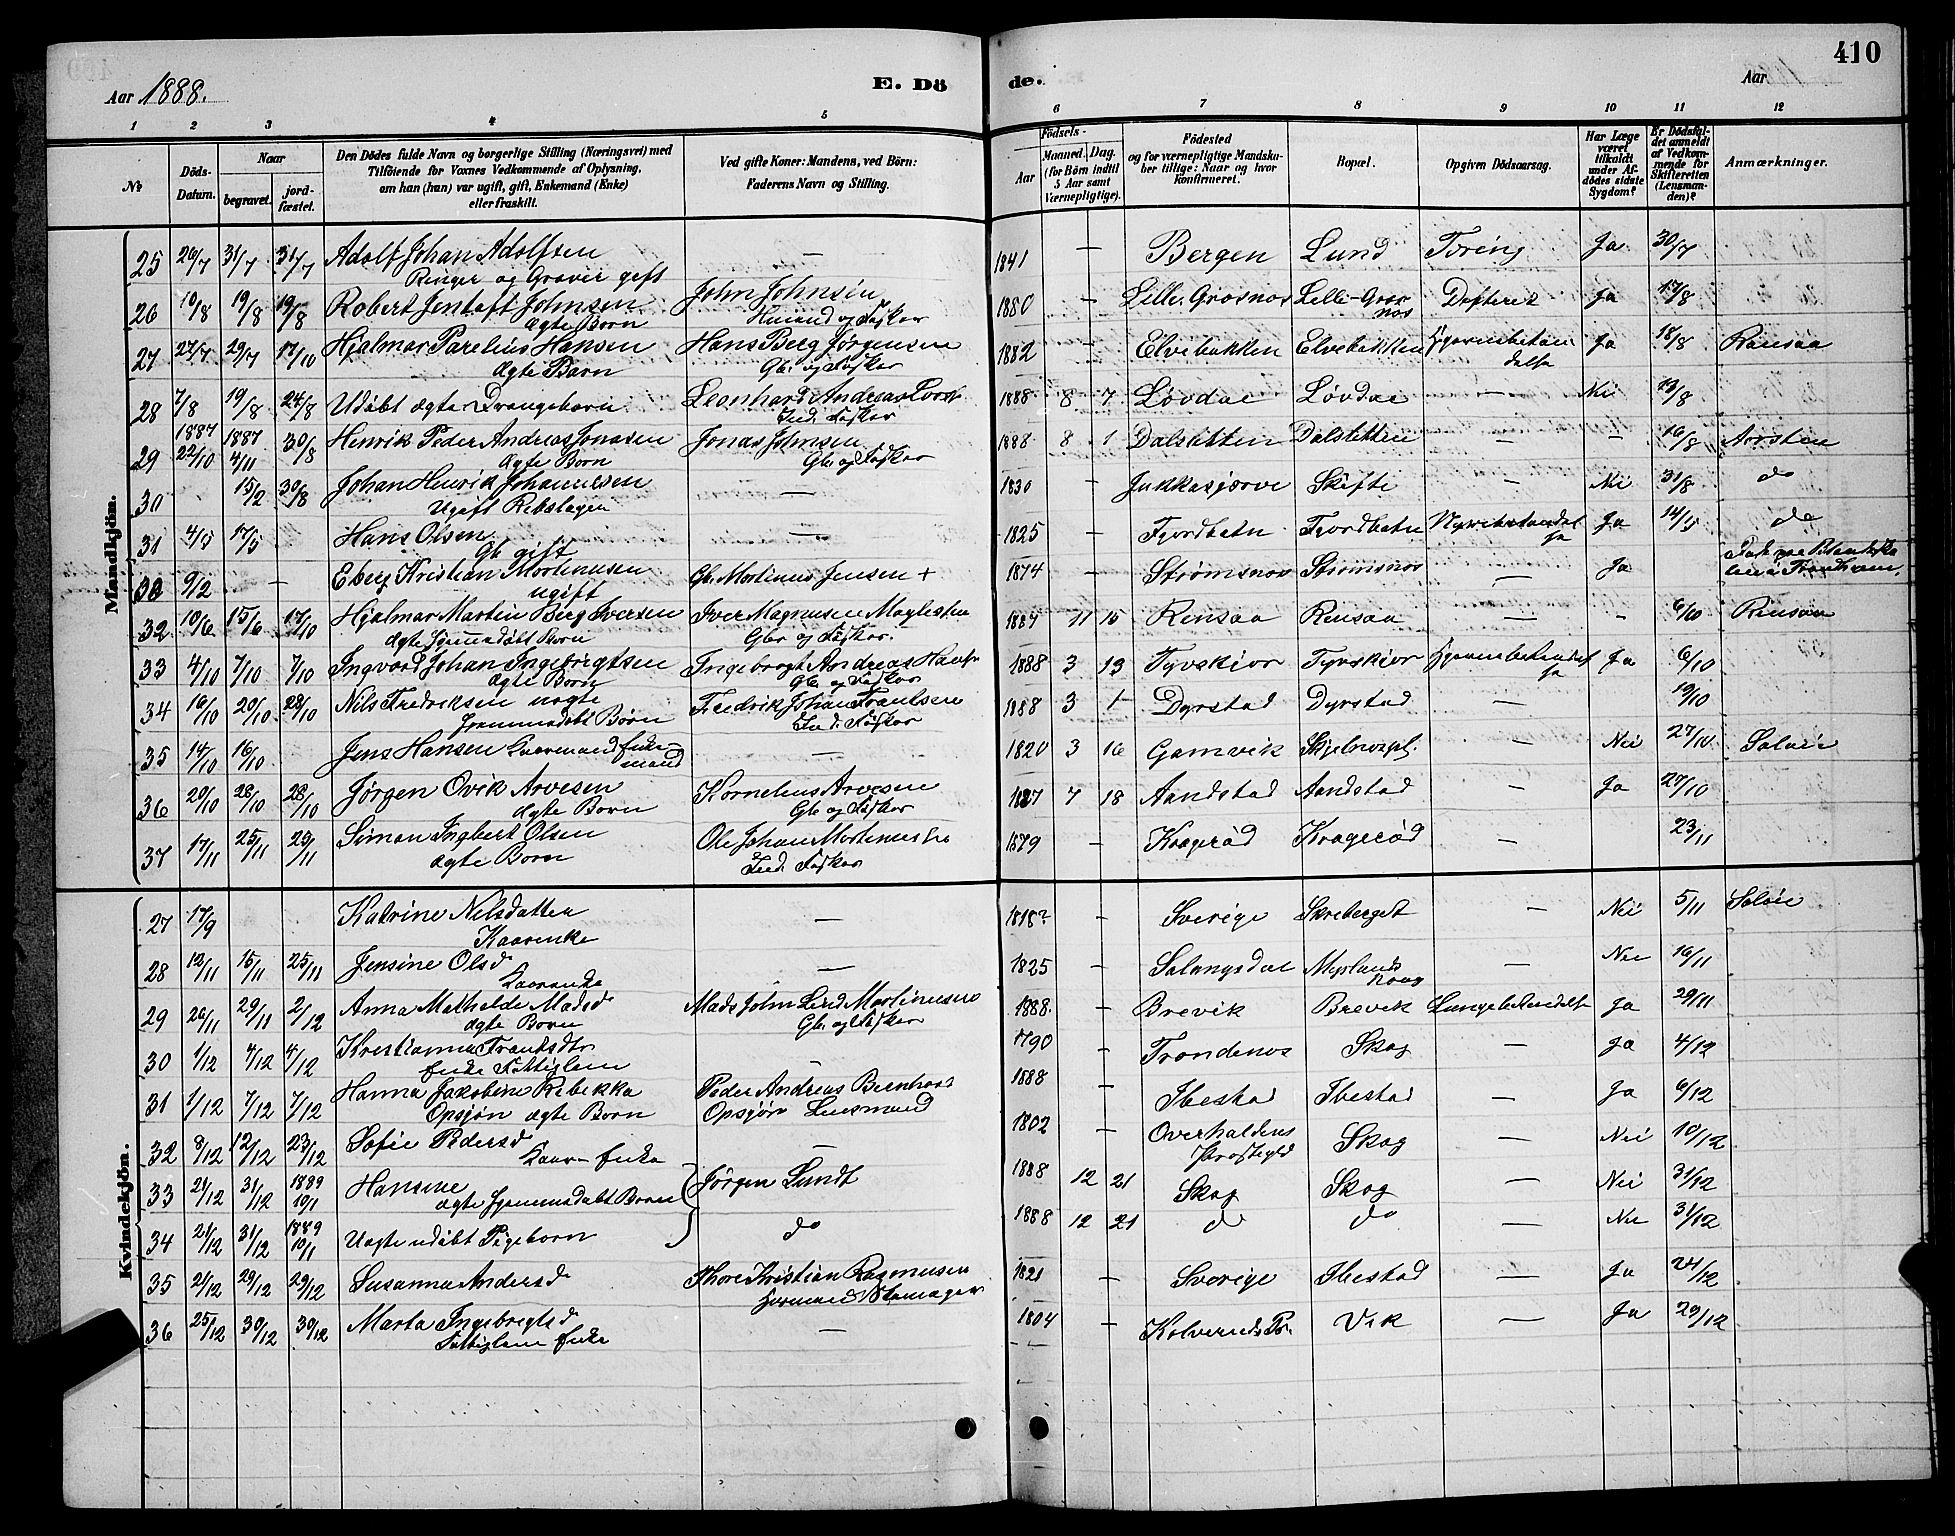 410
Aar 1888.
E. Dö
de.
Aar
1 2 3 4 5 6 7 8 9 10 11 12
No
Döds-Datum.
Naar
begravet.
jord-fæstet.
Den Dödes fulde Navn og borgerlige Stilling (Næringsvei) med
Tilföiende for Voxnes Vedkommende af Oplysning,
om han (hun) var ugift, gift, Enkemand (Enke)
eller fraskilt.
Ved gifte Koner: Mandens, ved Börn:
Faderens Navn og Stilling.
Födsels-
Aar
Maaned. Dag.
(for Börn indtil
5 Aar samt
Værnepligtige).
Födested
og for værnepligtige Mandsku-
ber tillige: Naar og hvor
konfirmeret.
Bopæl.
Opgiven Dödsaarsag.
Har Læge
været
tilkaldt
under Af-
dödes sidste
Sygdom?
Er Dödsfal-
det anmeldt
af Vedkom-
mende for
Skifteretten
(Lensman-
den)?
Anmærkninger.
Mandkjön.
25 26/7 31/7 31/7 Adolf Johan Adolfsen — 1841 — Bergen Lund Tæring Ja 30/7
Ringer og Graver gift
26 10/8 19/8 19/8 Robert Jentoft Johnsen John Johnsen 1880 — Lille-Grosnos Lille-Gros Ja 17/8
ægte Barn Husmand og Fisker nos
27 27/7 29/7 17/10 Hjalmar Parelius Hansen Hans Berg Jørgensen 1882 Elvebakken Elvebakken Hjernebetæn Ja 18/8 Rensaa
ægte Barn Gbr. og Fisker delse
28 7/8 19/8 24/8 Udøbt ægte Drengebarn Leonhard Andreas 1888 8 7 Løvdal Løvdal — Nei 19/8
Ind. Fisker
1887 1887
29 22/10 4/11 30/8 Henrik Peder Andreas Jonasen Jonas Johnsen 1888 8 1 Dalsletten Dalsletten — — 16/8 Aarsten
ægte Barn Gbr. og Fisker
30 15/2 30/8 Johan Henrik Johannesen — 1830 — Jukkasjærve Skefte — Nei 31/8 do
Ugift
31 4/5 17/5 Hans Olsen — 1825 — Fjordbotn Fjordbotn Ja 14/5 do
Gb. gift
9/2 — Eberg Kristian Mortinusen Gbr. Mortinus Jensen + 1874 — Strømsnos Strømsnos — Ja
ugift
32 10/6 15/6 17/10 Hjalmar Martin Berg Iversen Iver Magnus 11 15 Rensaa Rensaa — - 6/10 Rensaa
ægte hjemmedøbt Barn Gbr. og Fisker.
33 4/10 7/10 7/10 Ingvard Johan Ingebrigtsen Ingebrigt Andreas 1888 3 13 Tyvskjær Tyvskjær Ja 6/10
ægte Barn Gbr. og Fisker
34 16/10 20/10 28/10 Nils Fredriksen uægte Fredrik Johan Frantsen 1888 3 1 Dyrstad Dyrstad — 19/10
hjemmedøbt Børn Ind. Fisker
35 14/10 16/10 Jens Hansen Enke- — 1820 3 16 Gamvik — Nei 27/10 Salvie
mand
36 20/10 28/10 28/10 Jørgen Ovik Arvesen Kornelius Arvesen 1887 7 18 Aandstad Aandstad — Ja 27/10
ægte Barn Gbr. og Fisker
37 17/11 25/11 25/11 Simon Ingbert Olsen Ole Johan 1879 — Kragerød Kragerød — 23/11
ægte Barn Ind. Fisker
Kvindekjön.
27 17/9 Katrine Nilsdatter — 1818? — Sverige Skreberget — Nei 5/11
Kaarenke
28 12/11 15/11 25/11 Jensine Olsd — 1825 — Salangsdal Myrlands — Nei 16/11
Kaarenke
29 26/11 29/11 2/12 Anna Mathilde Madsd Mads John Lind Mortinusen 1888. Brevik Brevik Lungebetændelse Ja 29/11
ægte Barn Gbr. og Fisker
30 1/12 4/12 4/12 Kristianna Frantsdtr — 1790 — Trondenes Skog — Ja 4/12
Enke Fattiglem
31 1/12 7/12 7/12 Hanna Jakobine Rebekka Peder Andreas Bernhard 1888 — Ibestad Ibestad — Ja 6/12
Opsjøn ægte Barn Opsjøn Lensmand
32 8/12 12/12 23/12 Sofie Pedersd — 1802 — Overhaldens Skog — Nei 10/12
Kaar-Enke Præstegjeld
33 21/12 31/12 1889 10/1 Hansine Jørgen Lundt 1888 12 21 Skog Skog — Nei 31/12
ægte hjemmedøbt Barn
34 21/12 31/12 1889 10/1 Uægte udøbt Pigebarn do 1888 12 21 do do — Nei 31/12
35 21/12 29/12 29/12 Susanna Andersd Thore Kristian Rasmusen 1821 — Sverige Ibestad — Ja 24/12
36 25/12 30/12 30/12 Marta Ingebrigtsd — 1804 — Kolvereids Pr. Vik — Ja 29/12
Fattiglem Enke